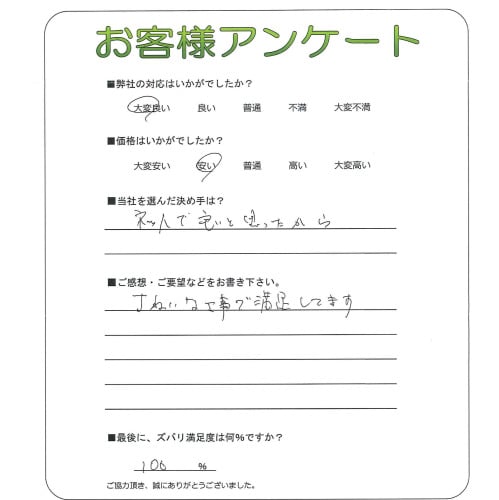 お客様アンケート
■弊社の対応はいかがでしたか？
大変良い 良い 普通 不満 大変不満
■価格はいかがでしたか？
大変安い 安い 普通 高い 大変高い
■当社を選んだ決め手は？
ネットで良いと思ったから
■ご感想・ご要望などをお書き下さい。
きれいな仕事で満足してます
■最後に、ズバリ満足度は何%ですか？
100 %
ご協力頂き、誠にありがとうございました。